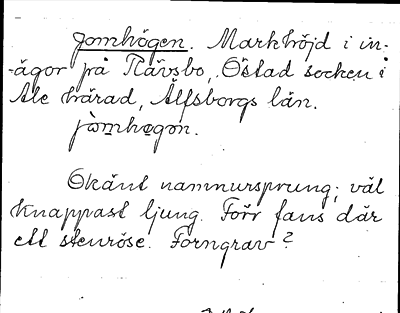 Jomhögen. Markhöjd i in-
-ägor på Nävsbo, Östad socken i
Ale härad, Älfsborgs län.
jòmhøgon.
Okänt namnursprung; väl
knappast ljung. Förr fans där
ett stenröse. Forngrav?